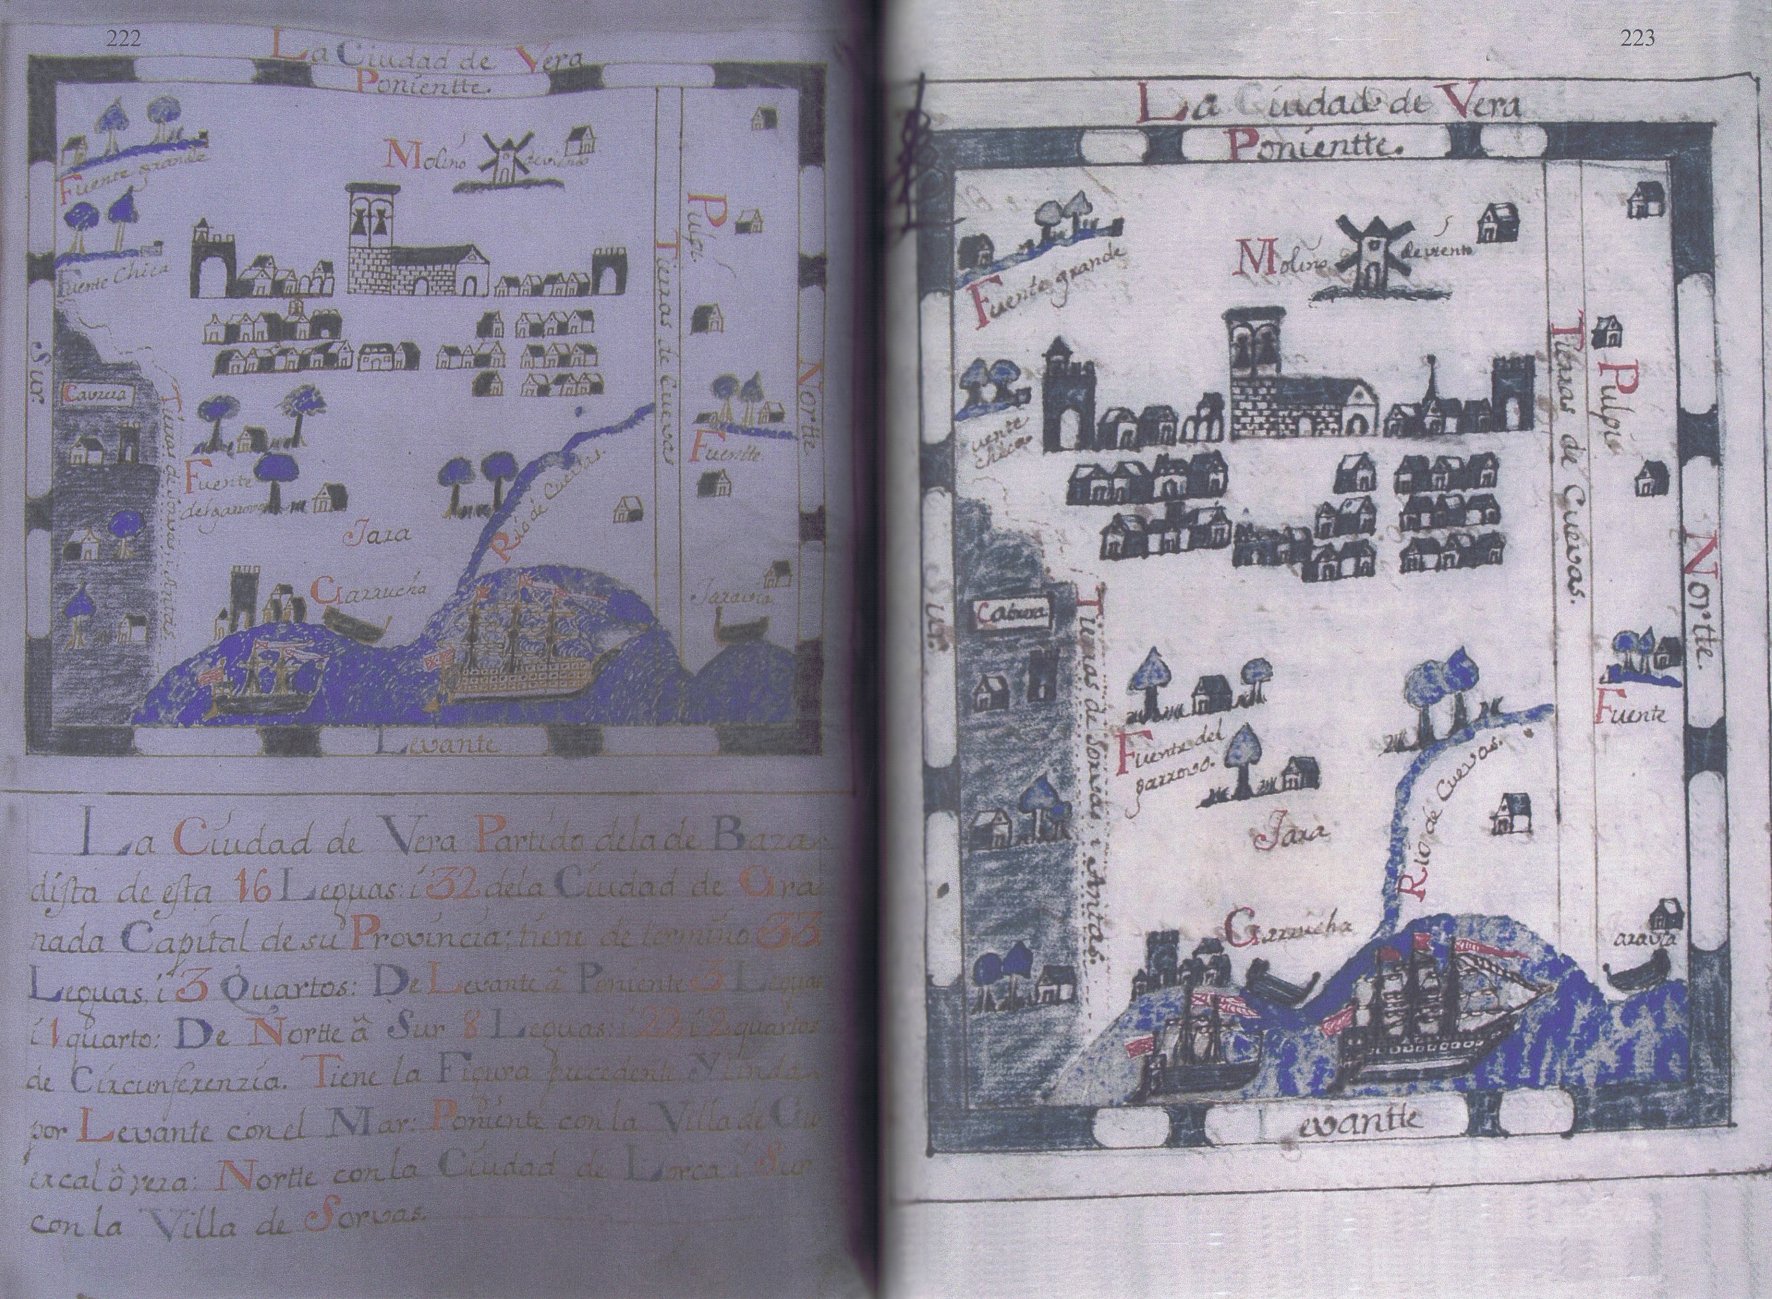 222
La Ciudad de Vera
Ponientte.
Molino de viento
Fuente grande
Fuente Chica
Pulpi
Tierras de Cuevas
Sur
Nortte
Cabrera
Fuente
del garrovo
Fuentte.
Rio de Cuevas.
Jara
Garrucha
Levante
La Ciudad de Vera Partido dela de Baza
dista de esta 16 Leguas: i 32 dela Ciudad de Gra
nada Capital de su Provincia; tiene de termino 33
Leguas, i 3 Quartos: De Levante â Poniente 3 Leguas
i 1 quarto: De Nortte â Sur 8 Leguas: i 22 i 2 quartos
de Circunferenzia. Tiene la Figura precedente Y linda
por Levante con el Mar: Poniente con la Villa de Gu
ercal ôvera: Nortte con la Ciudad de Lorca i Sur
con la Villa de Sorvas.
223
La Ciudad de Vera
Ponientte.
Molino de viento
Fuente grande
uente
chica
Tierras de Cuevas.
Pulpi
Nortte.
Sur.
Cabrera
Tierras de Sorvas, i Antas.
Fuente del
garrovo.
Fuente
Rio de Cuevas.
Jara
Garrucha
aravia
evantte